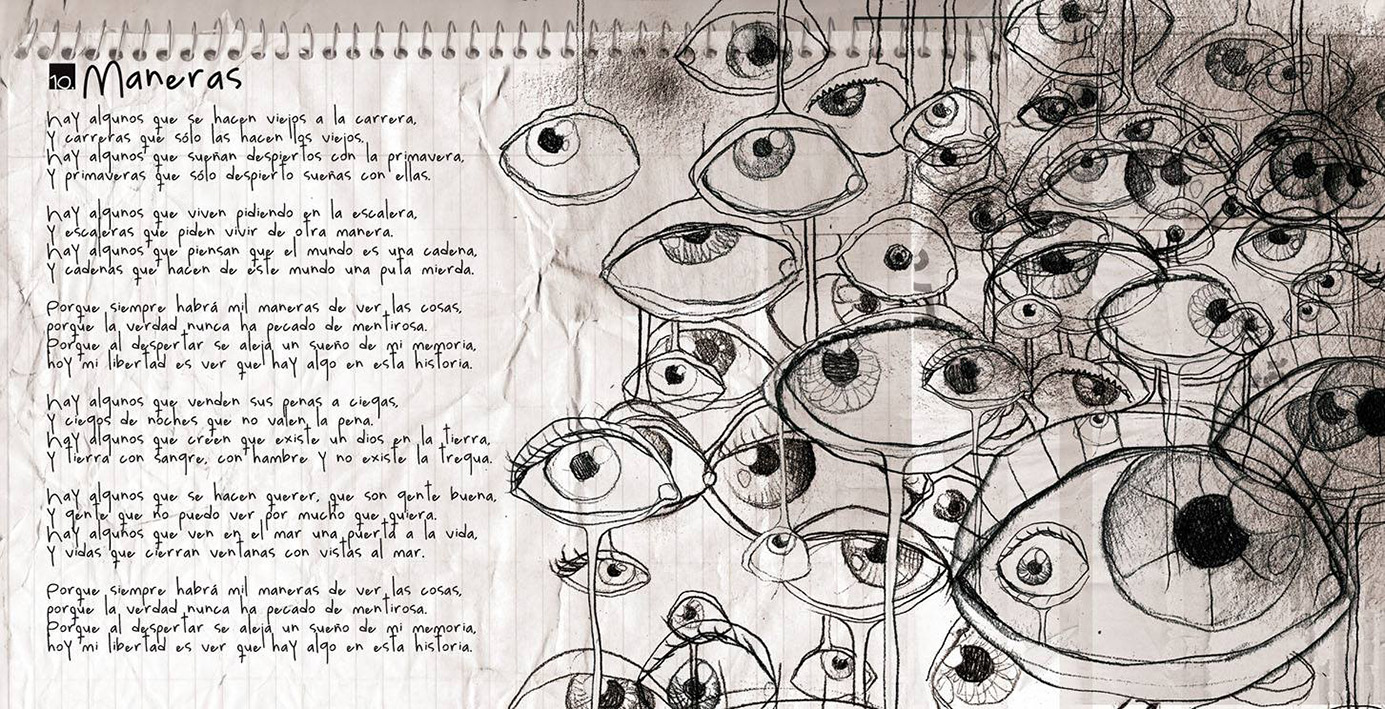 10. Maneras
hay algunos que se hacen viejos a la carrera,
Y carreras que sólo las hacen los viejos.
hay algunos que sueñan despiertos con la primavera,
Y primaveras que sólo despierto sueñas con ellas.
hay algunos que viven pidiendo en la escalera,
Y escaleras que piden vivir de otra manera.
hay algunos que piensan que el mundo es una cadena,
Y cadenas que hacen de este mundo una puta mierda.
Porque siempre habrá mil maneras de ver las cosas,
porque la verdad nunca ha pecado de mentirosa.
Porque al despertar se aleja un sueño de mi memoria,
hoy mi libertad es ver que hay algo en esta historia.
hay algunos que venden sus penas a ciegas,
Y ciegos de noches que no valen la pena.
hay algunos que creen que existe un dios en la tierra,
Y tierra con sangre, con hambre Y no existe la tregua.
hay algunos que se hacen querer, que son gente buena,
Y gente que no puedo ver por mucho que quiera.
hay algunos que ven en el mar una puerta a la vida,
Y vidas que cierran ventanas con vistas al mar.
Porque siempre habrá mil maneras de ver las cosas,
porque la verdad nunca ha pecado de mentirosa.
Porque al despertar se aleja un sueño de mi memoria,
hoy mi libertad es ver que hay algo en esta historia.